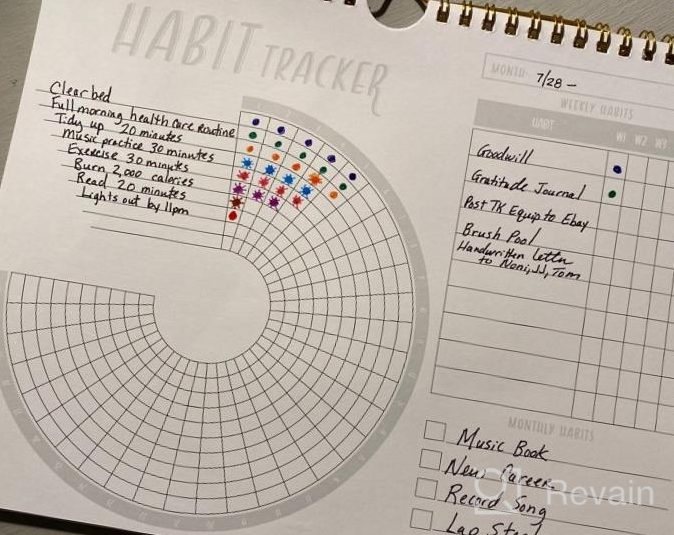 HABIT TRACKER
Clear bed
Full morning health care Routine
Tidy up 20 minutes
Music practice 30 minutes
Exercise 30 minutes
Burn 2,000 calories
Read 20 minutes
Lights out by 11pm
MONTH: 7/28 -
WEEKLY HABITS
HABIT W1 W2 W3
Goodwill
Gratitude Journal
Post TK Equip to Ebay
Brush Pool
Handwritten Letter
to Noni, JJ, Tom
MONTHLY HABITS
Music Book
New Career
Record Song
Lap Steel
Revain